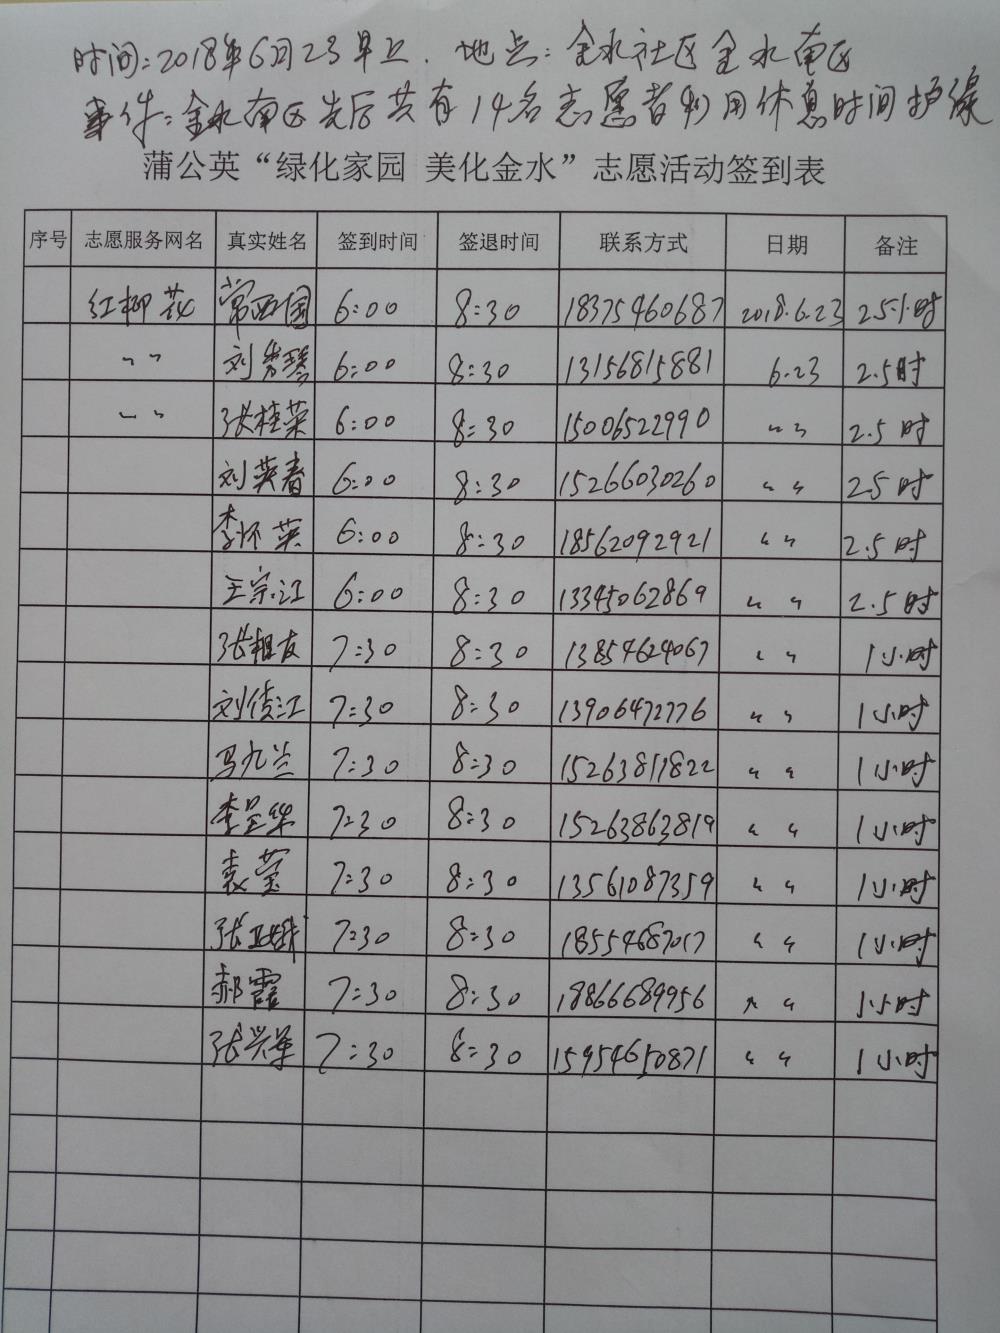 时间:2018年6月23早上. 地点:金水社区金水南区
事件:金水南区先后共有14名志愿者利用休息时间护绿
蒲公英“绿化家园 美化金水”志愿活动签到表
序号 志愿服务网名 真实姓名 签到时间 签退时间 联系方式 日期 备注
红柳花 常西国 6:00 8:30 18375460687 2018.6.23 2.5小时
〃 刘秀琴 6:00 8:30 13156815881 6.23 2.5时
〃 张桂荣 6:00 8:30 15006522990 〃 2.5时
刘英春 6:00 8:30 15266030260 〃 2.5时
李怀英 6:00 8:30 18562092921 〃 2.5时
王宗江 6:00 8:30 13345062869 〃 2.5时
张相友 7:30 8:30 13854624067 〃 1小时
刘江 7:30 8:30 13906472776 〃 1小时
马九兰 7:30 8:30 15263811822 〃 1小时
李 7:30 8:30 15263863819 〃 1小时
袁莹 7:30 8:30 13561087359 〃 1小时
张 7:30 8:30 18554687017 〃 1小时
郝霞 7:30 8:30 18866689956 〃 1小时
张兴军 7:30 8:30 15954650871 〃 1小时